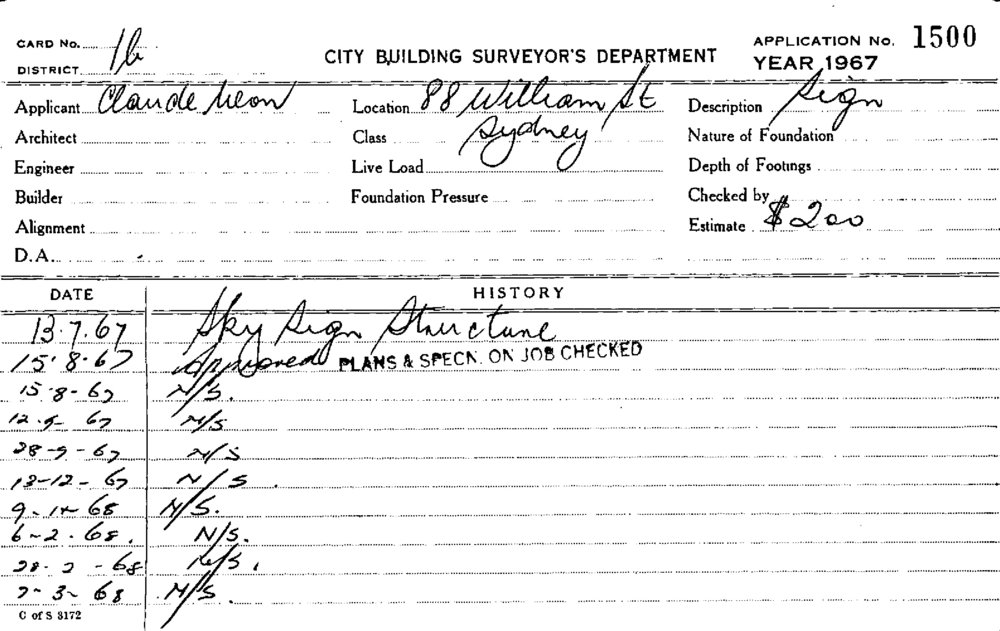 CARD No. 1b
DISTRICT
CITY BUILDING SURVEYOR'S DEPARTMENT
APPLICATION No. 1500
YEAR 1967
Applicant Claude Neon Location 88 William St Description Sign
Architect Class Sydney Nature of Foundation
Engineer Live Load Depth of Footings
Builder Foundation Pressure Checked by
Alignment Estimate $200
D.A.
DATE HISTORY
13.7.67 Sky Sign Structure
15.8.67 Approved PLANS & SPECN. ON JOB CHECKED
15-8-67 N/S.
12.9-67 N/S
28-9-67 N/S
13-12-67 N/S.
9-1-68 N/S.
6-2-68. N/S.
28-2-68 N/S.
7-3-68 N/S.
C of S 3172